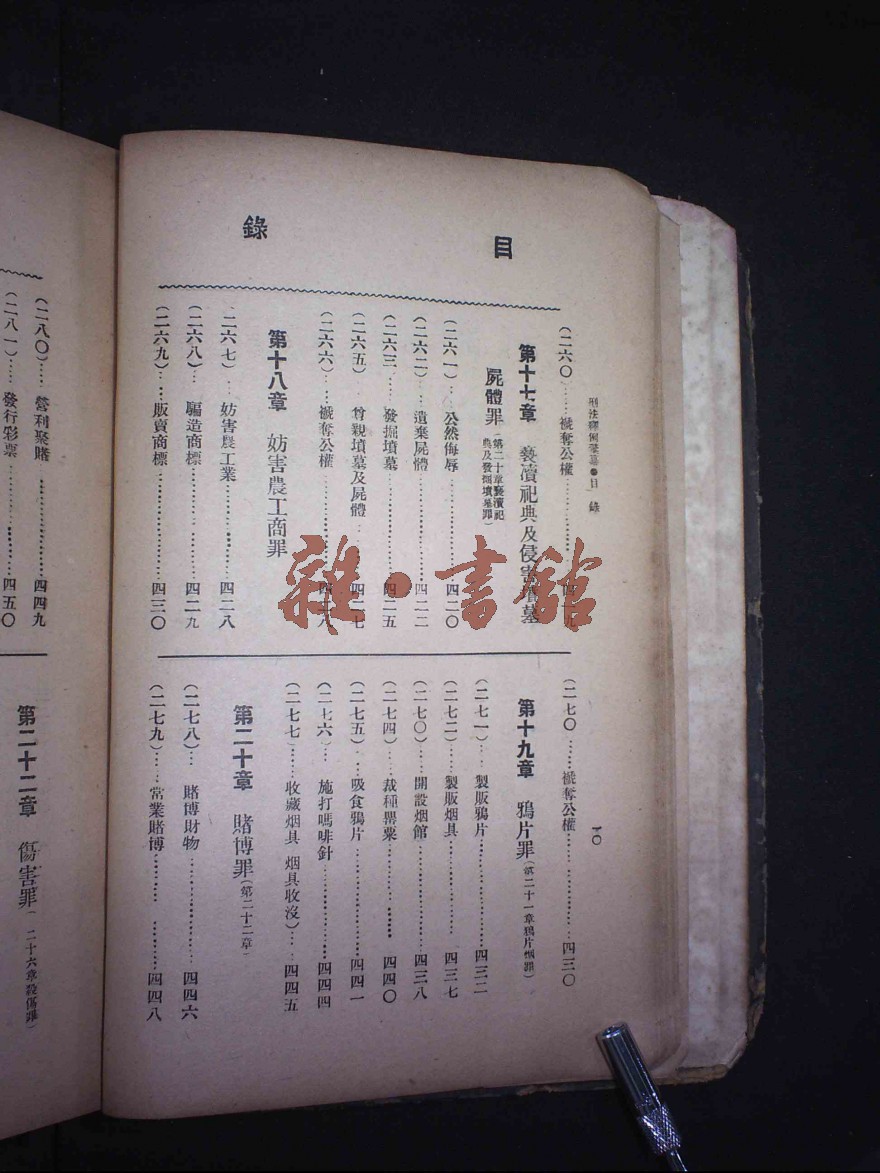 目錄
目 錄
(二六〇)……褫奪公權……四一九
第十七章 褻瀆祀典及侵害墳墓
屍體罪(第二十章褻瀆祀典及發掘墳墓罪)
(二六一)…公然侮辱……四二〇
(二六二)…遺棄屍體……四二二
(二六三…發掘墳墓……四二五
(二六五)…尊親墳墓及屍體……四二七
(二六六)…褫奪公權……四二八
第十八章 妨害農工商罪
二六七)…妨害農工業……四二八
(二六八)…騙造商標……四二九
(二六九)…販賣商標……四三〇
(二七〇……褫奪公權……四三〇
第十九章 鴉片罪(第二十一章鴉片烟罪)
(二七一)…製販鴉片……四三二
(二七二)…製販烟具……四三七
(二七〇)…開設烟館……四三八
(二七四)…栽種罌粟……四四〇
(二七五)…吸食鴉片……四四一
(二七六)…施打嗎啡針……四四四
(二七七……收藏烟具 烟具收沒)…四四五
第二十章 賭博罪(第二十二章)
(二七八)…賭博財物……四四六
(二七九)…常業賭博……四四八
一〇
(二八〇)…營利聚賭……四四九
(二八一)…發行彩票……四五〇
第二十二章 傷害罪(二十六章殺傷罪)
雜·書館